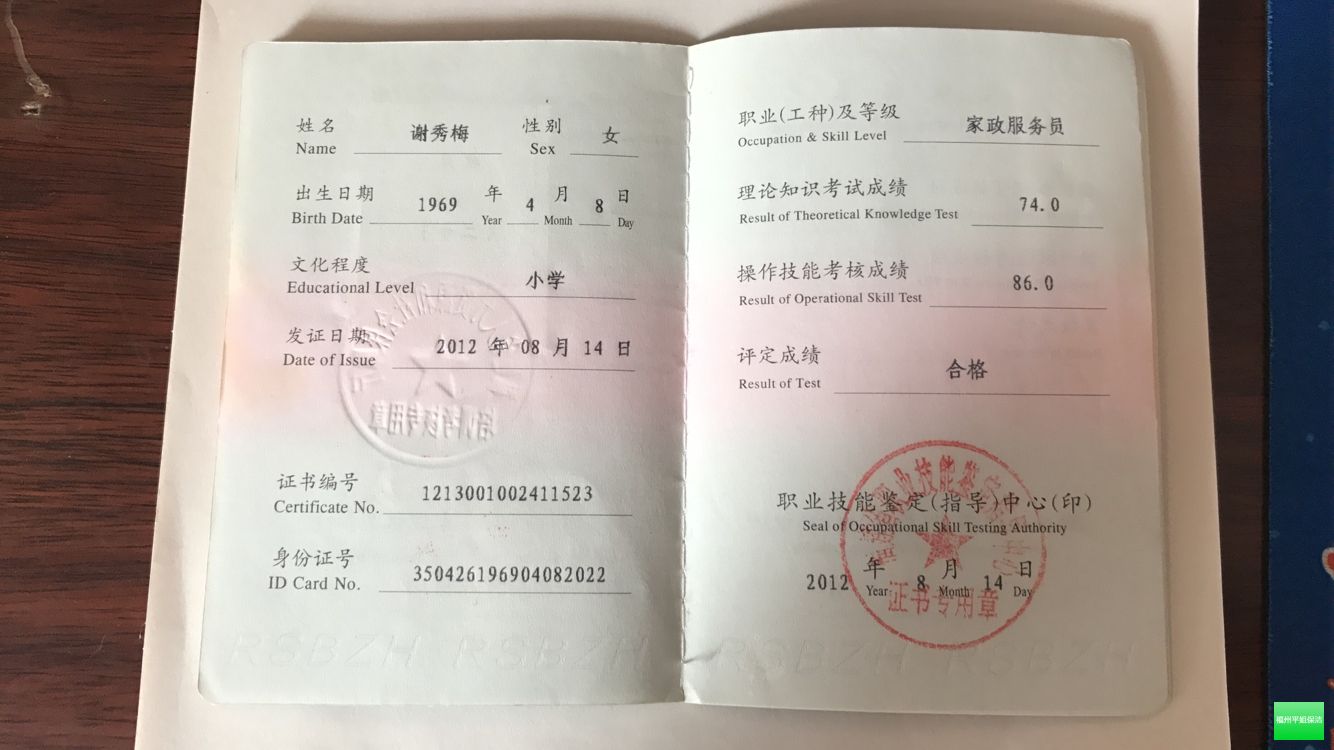 姓名 谢秀梅 性别 女
Name Sex
出生日期 1969 年 4 月 8 日
Birth Date Year Month Day
文化程度 小学
Educational Level
发证日期 2012 年 08 月 14 日
Date of Issue
证书编号 1213001002411523
Certificate No.
身份证号 350426196904082022
ID Card No.
RSBZH RSBZH
职业(工种)及等级 家政服务员
Occupation & Skill Level
理论知识考试成绩 74.0
Result of Theoretical Knowledge Test
操作技能考核成绩 86.0
Result of Operational Skill Test
评定成绩 合格
Result of Test
职业技能鉴定(指导)中心(印)
Seal of Occupational Skill Testing Authority
2012 年 8 月 14 日
Year Month Day
证书专用章
RSBZH RSBZH
福州平姐保洁